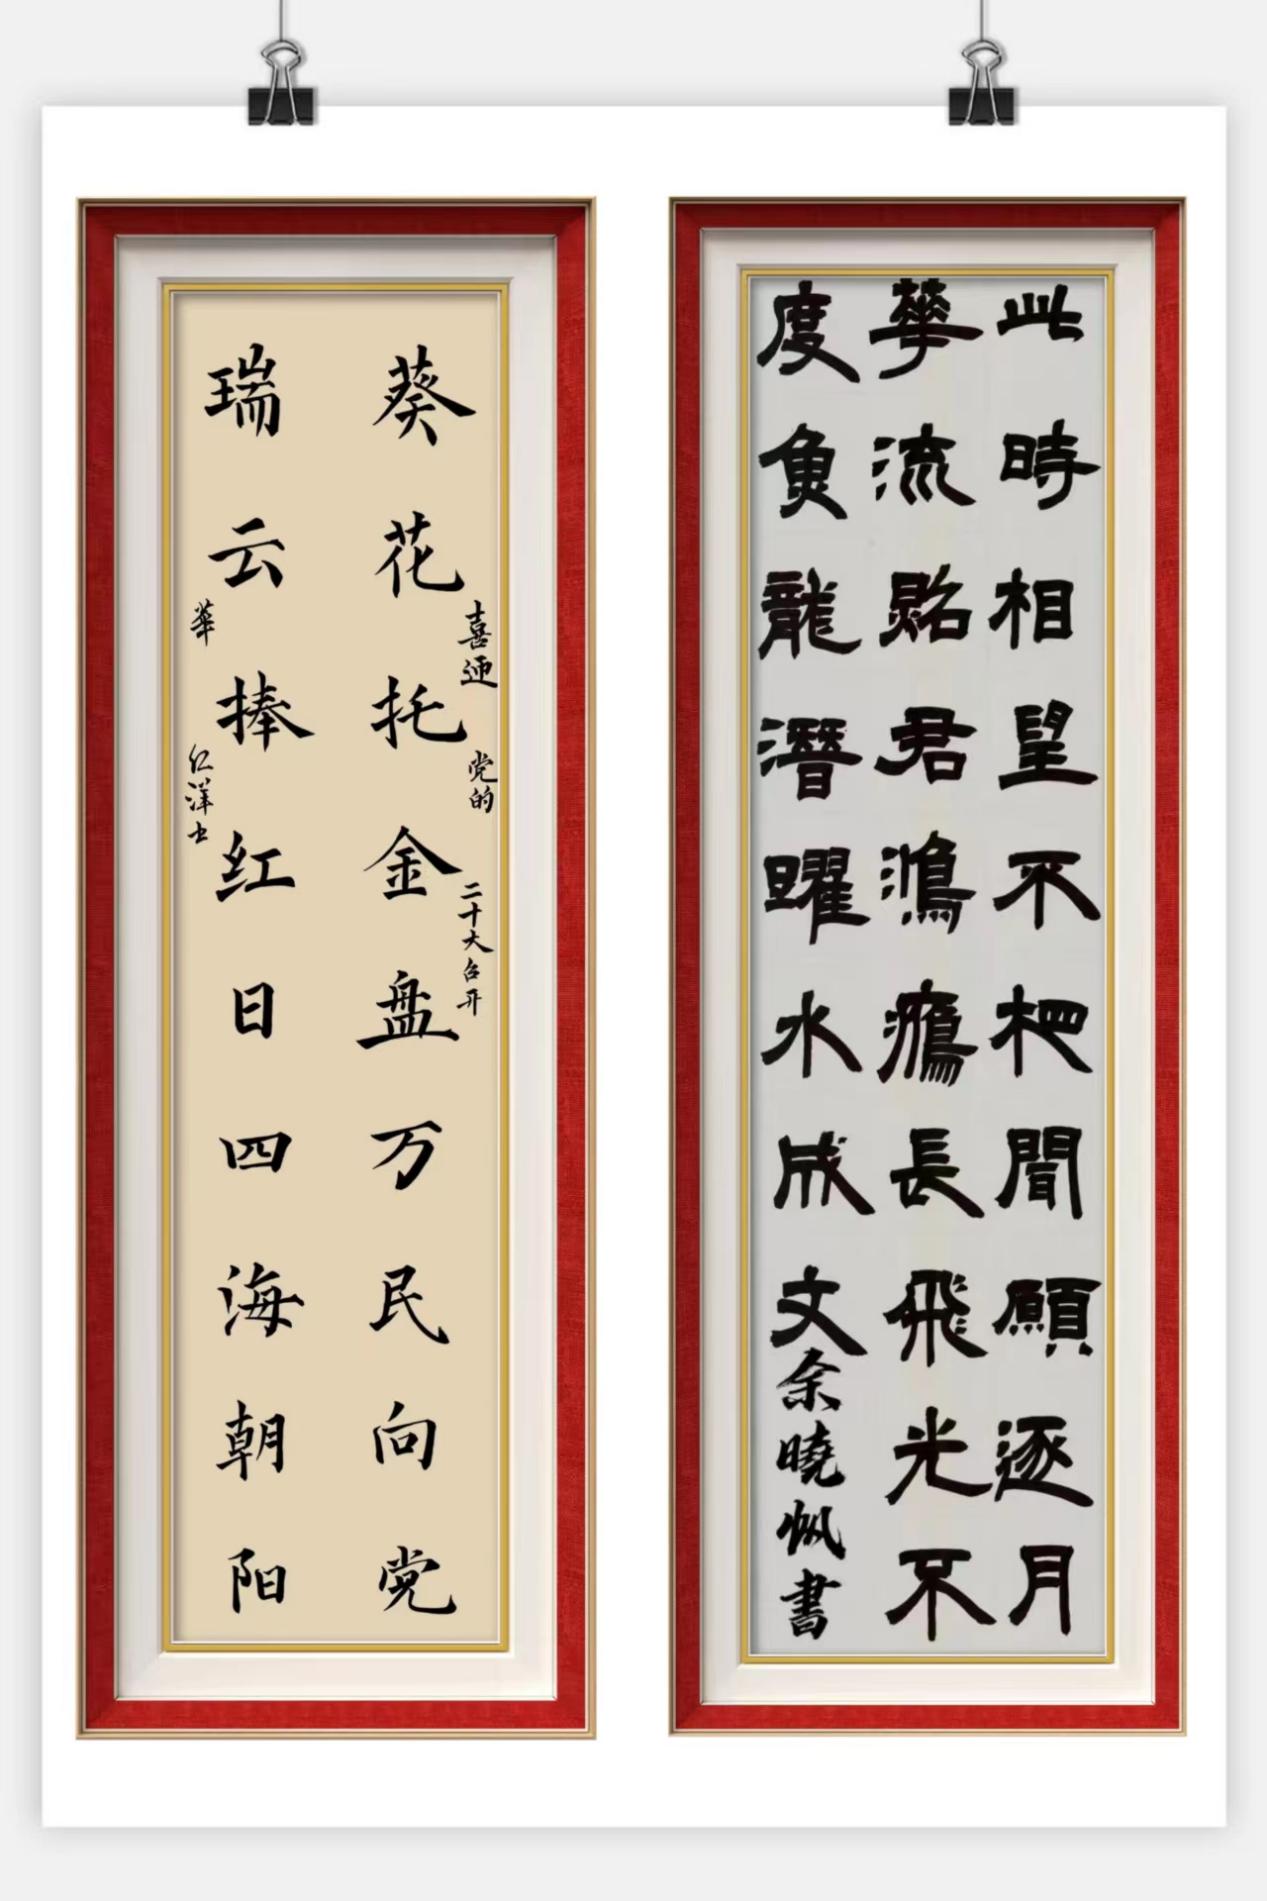 此時相望不相聞願逐月
華流照君鴻鴈長飛光不
度魚龍潛躍水成文
余曉帆書
喜迎党的二十大召开
葵花托金盘万民向党
瑞云捧红日四海朝阳
華仁洋书